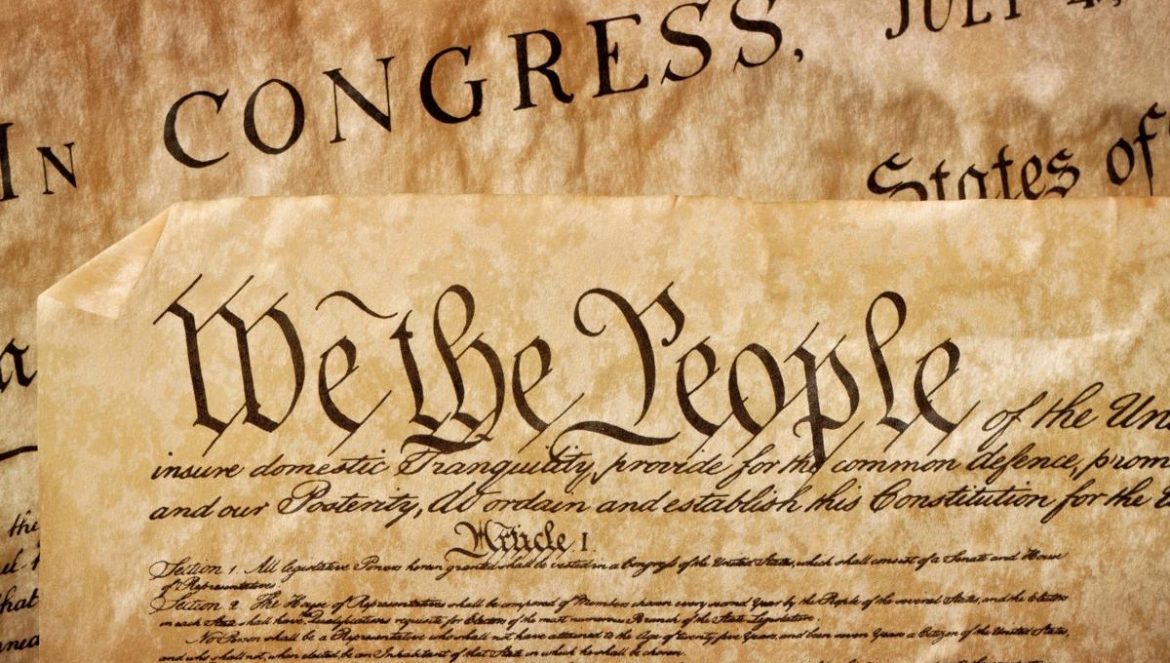 IN CONGRESS, JULY 4,
States of
a
We the People of the Un
insure domestic Tranquility, provide for the common defence, prom
and our Posterity, do ordain and establish this Constitution for the
Article I.
the
Section 1. All legislative Powers herein granted shall be vested in a Congress of the United States, which shall consist of a Senate and House
of Representatives.
Section 2. The House of Representatives shall be composed of Members chosen every second Year by the People of the several States, and the Electors
that
in each State shall have Qualifications requisite for Electors of the most numerous Branch of the State Legislature.
No Person shall be a Representative who shall not have attained to the Age of twenty five Years, and been seven Years a Citizen of the United States,
and who shall not, when elected, be an Inhabitant of that State in which he shall be chosen.